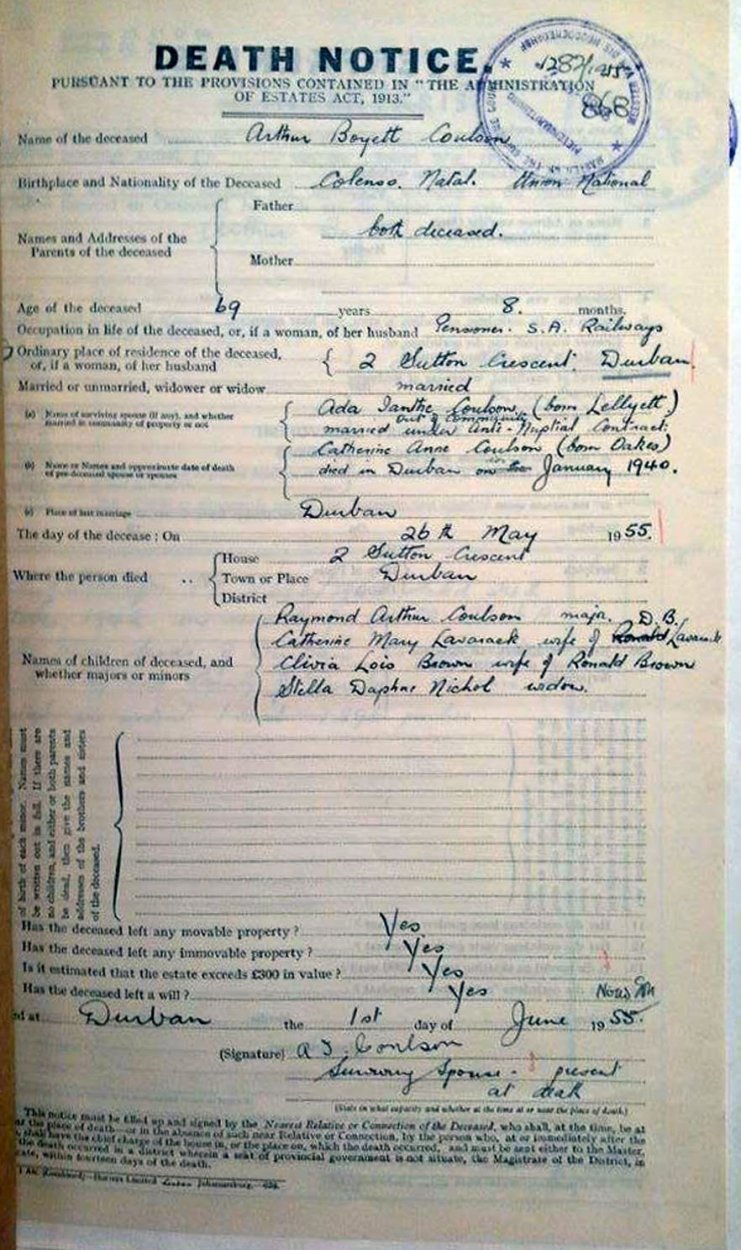 DEATH NOTICE.
PURSUANT TO THE PROVISIONS CONTAINED IN "THE ADMINISTRATION
OF ESTATES ACT, 1913."
868
Name of the deceased Arthur Boyett Coulson
Birthplace and Nationality of the Deceased Colenso. Natal. Union National
Names and Addresses of the
Parents of the deceased
Father
both deceased.
Mother
Age of the deceased 69 years 8. months.
Occupation in life of the deceased, or, if a woman, of her husband Pensioner. S.A. Railways
Ordinary place of residence of the deceased,
or, if a woman, of her husband
2 Sutton Crescent. Durban.
Married or unmarried, widower or widow married
(a) Name of surviving spouse (if any), and whether
married in community of property or not
Ada Ianthe Coulson (born Lellyett)
out of community
married under Anti-Nuptial Contract.
(b) Name or Names and approximate date of death
of pre-deceased spouse or spouses
Catherine Anne Coulson (born Oakes)
died in Durban in January 1940.
(c) Place of last marriage Durban
The day of the decease: On 26th May 1955.
Where the person died ..
House 2 Sutton Crescent
Town or Place Durban
District
Names of children of deceased, and
whether majors or minors
Raymond Arthur Coulson major. D.B.
Catherine Mary Lavarack wife of Ronald Lavarack
Clivia Lois Brown wife of Ronald Brown
Stella Daphne Nichol widow.
of birth of each minor. Names must
be written out in full. If there are
no children, and either or both parents
be dead, then give the names and
addresses of the brothers and sisters
of the deceased.
Has the deceased left any movable property? Yes
Has the deceased left any immovable property? Yes
Is it estimated that the estate exceeds £300 in value? Yes
Has the deceased left a will? Yes
ed at Durban the 1st day of June 1955.
(Signature) A I Coulson
Surviving Spouse - present
at death
(State in what capacity and whether at the time at or near the place of death.)
This notice must be filled up and signed by the Nearest Relative or Connection of the Deceased, who shall, at the time, be at
the place of death—or in the absence of such near Relative or Connection, by the person who, at or immediately after the
shall have the chief charge of the house in, or the place on, which the death occurred, and must be sent either to the Master,
the death occurred in a district wherein a seat of provincial government is not situate, the Magistrate of the District, in
cate, within fourteen days of the death.
Limited Johannesburg.